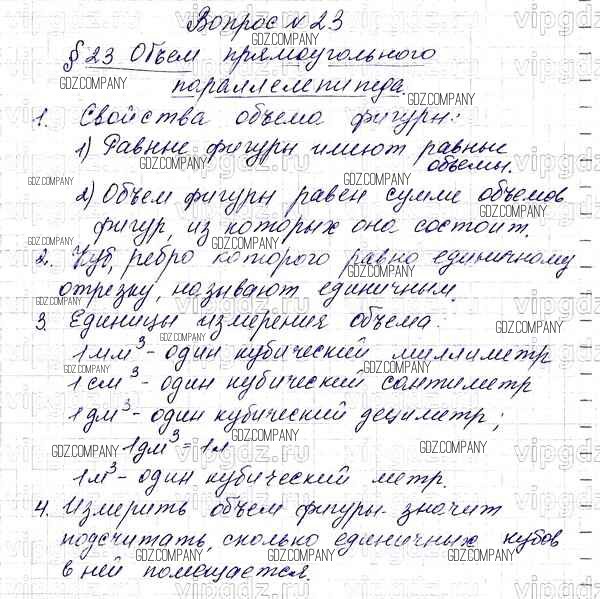 Вопрос №23
§23 Объем прямоугольного
параллелепипеда.
1. Свойства объема фигуры:
1) Равные фигуры имеют равные
объемы.
2) Объем фигуры равен сумме объемов
фигур, из которых она состоит.
2. Куб, ребро которого равно единичному
отрезку, называют единичным.
3. Единицы измерения объема:
1 мм³ - один кубический миллиметр
1 см³ - один кубический сантиметр
1 дм³ - один кубический дециметр;
1 дм³ = 1л
1 м³ - один кубический метр.
4. Измерить объем фигуры - значит
подсчитать, сколько единичных кубов
в ней помещается.
GDZ.COMPANY
vipgdz.ru